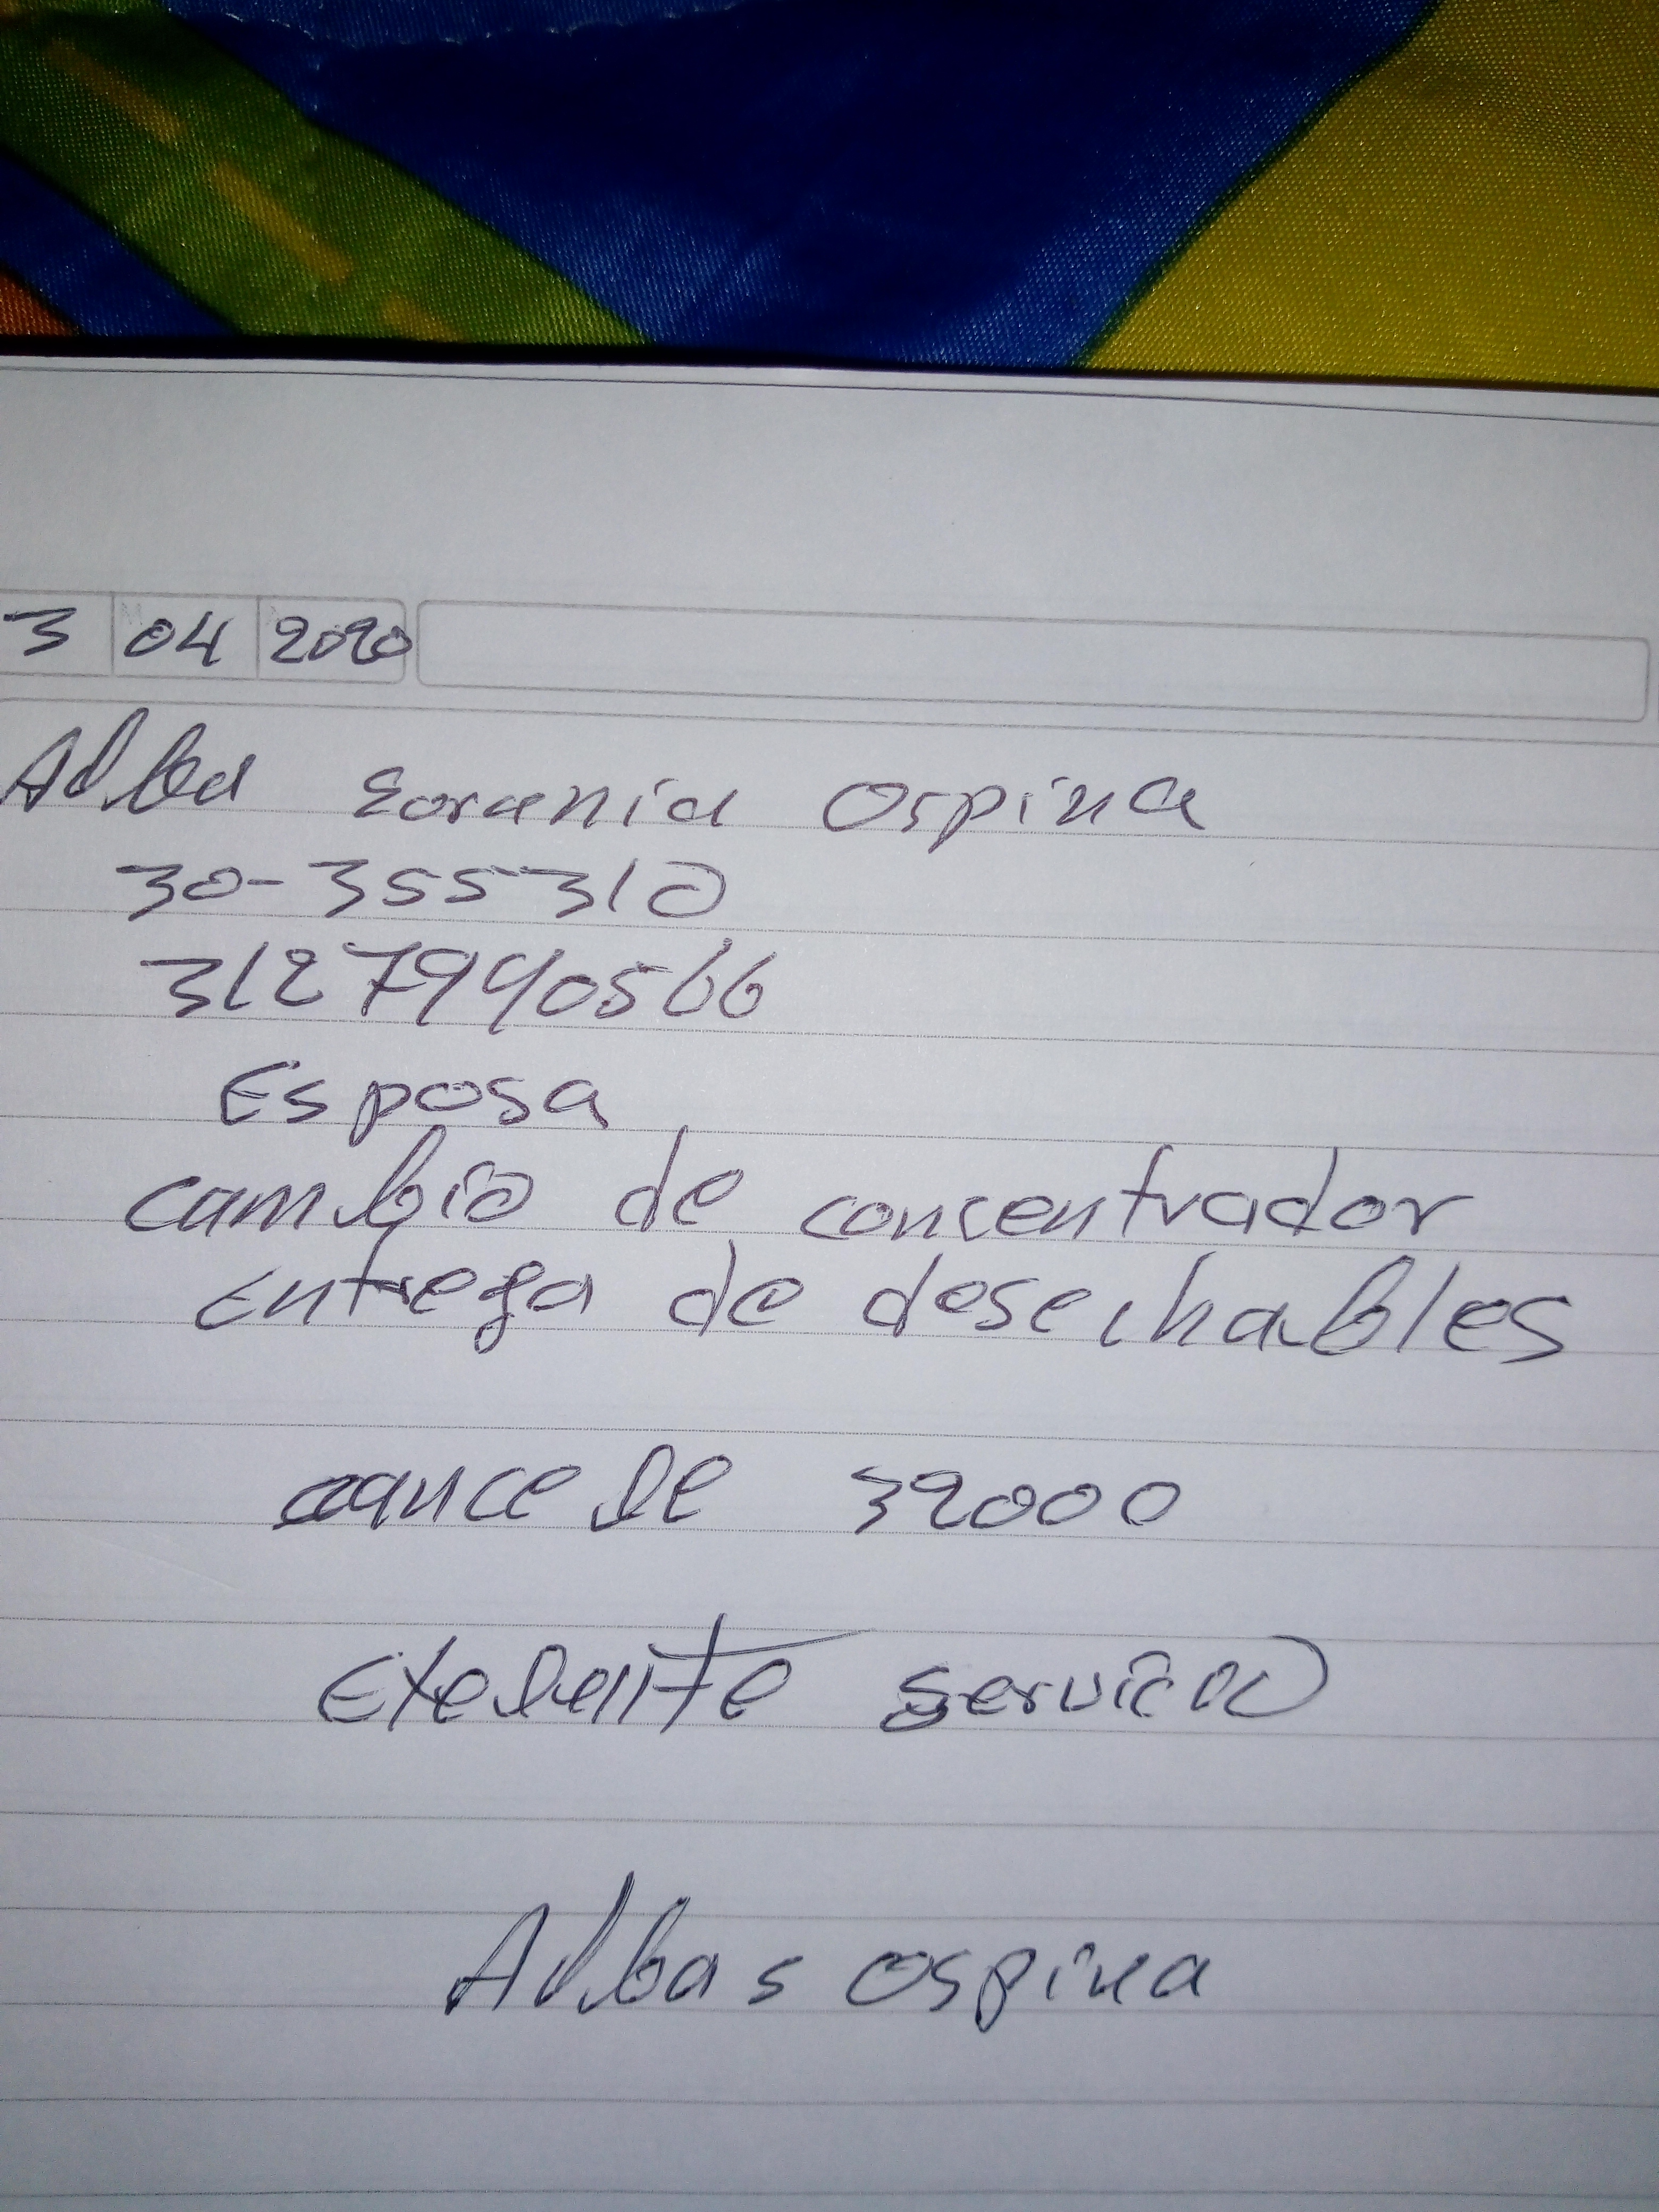 3 04 2020
Alba Sorania Ospina
30-355310
3127940566
Esposa
cambio de concentrador
entrega de desechables
cancele 32000
Exelente servicio
Alba s ospina